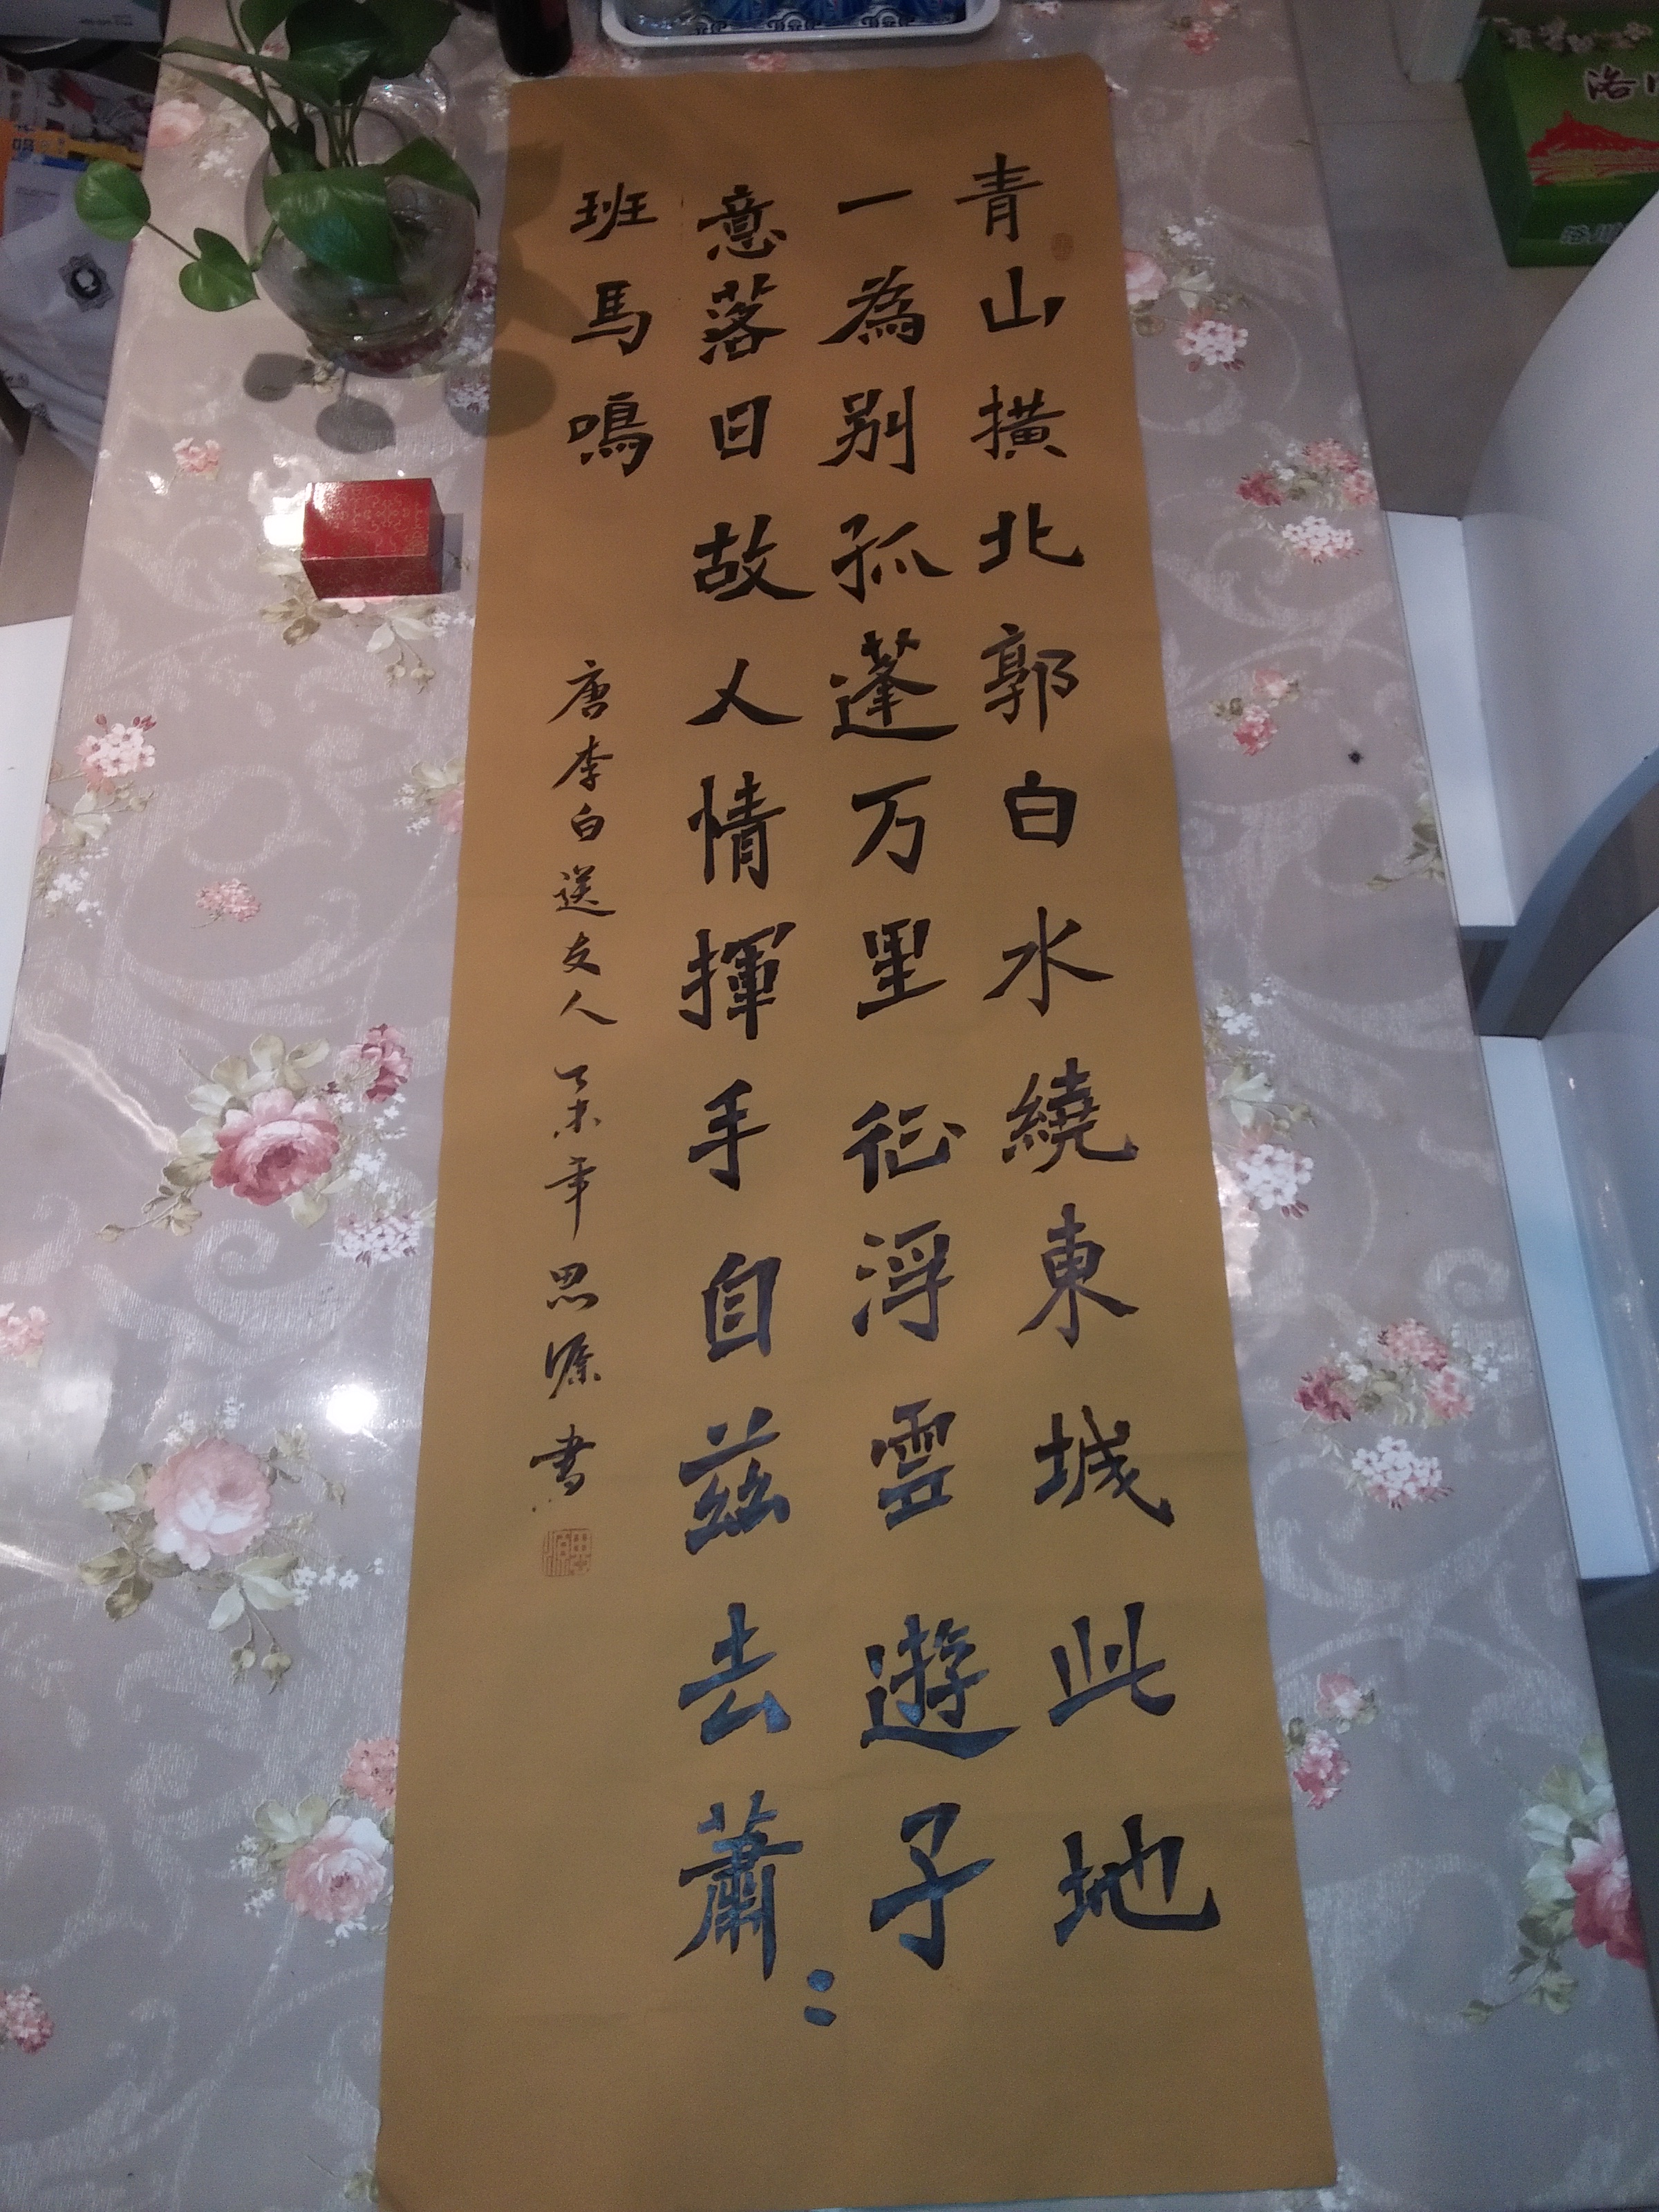 青山横北郭白水繞東城此地
一為别孤蓬万里征浮雲遊子
意落日故人情揮手自茲去蕭〻
班馬鳴 唐李白送友人 乙未年 思源書
洛川
洛川